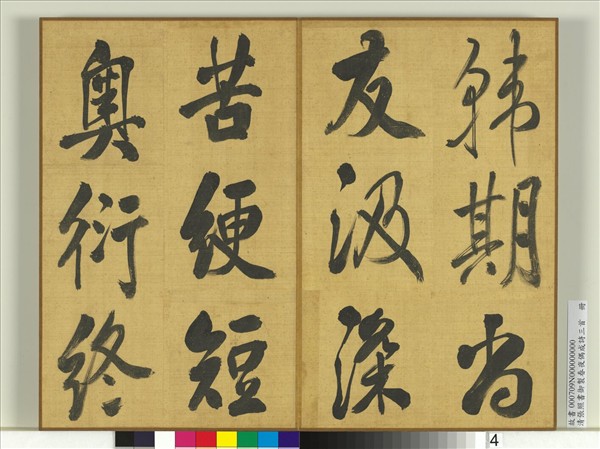 韩期尚
友汲深
苦绠短
奥衍终
故書000709N000000000
清張照書御製春夜偶成詩三首 冊
4